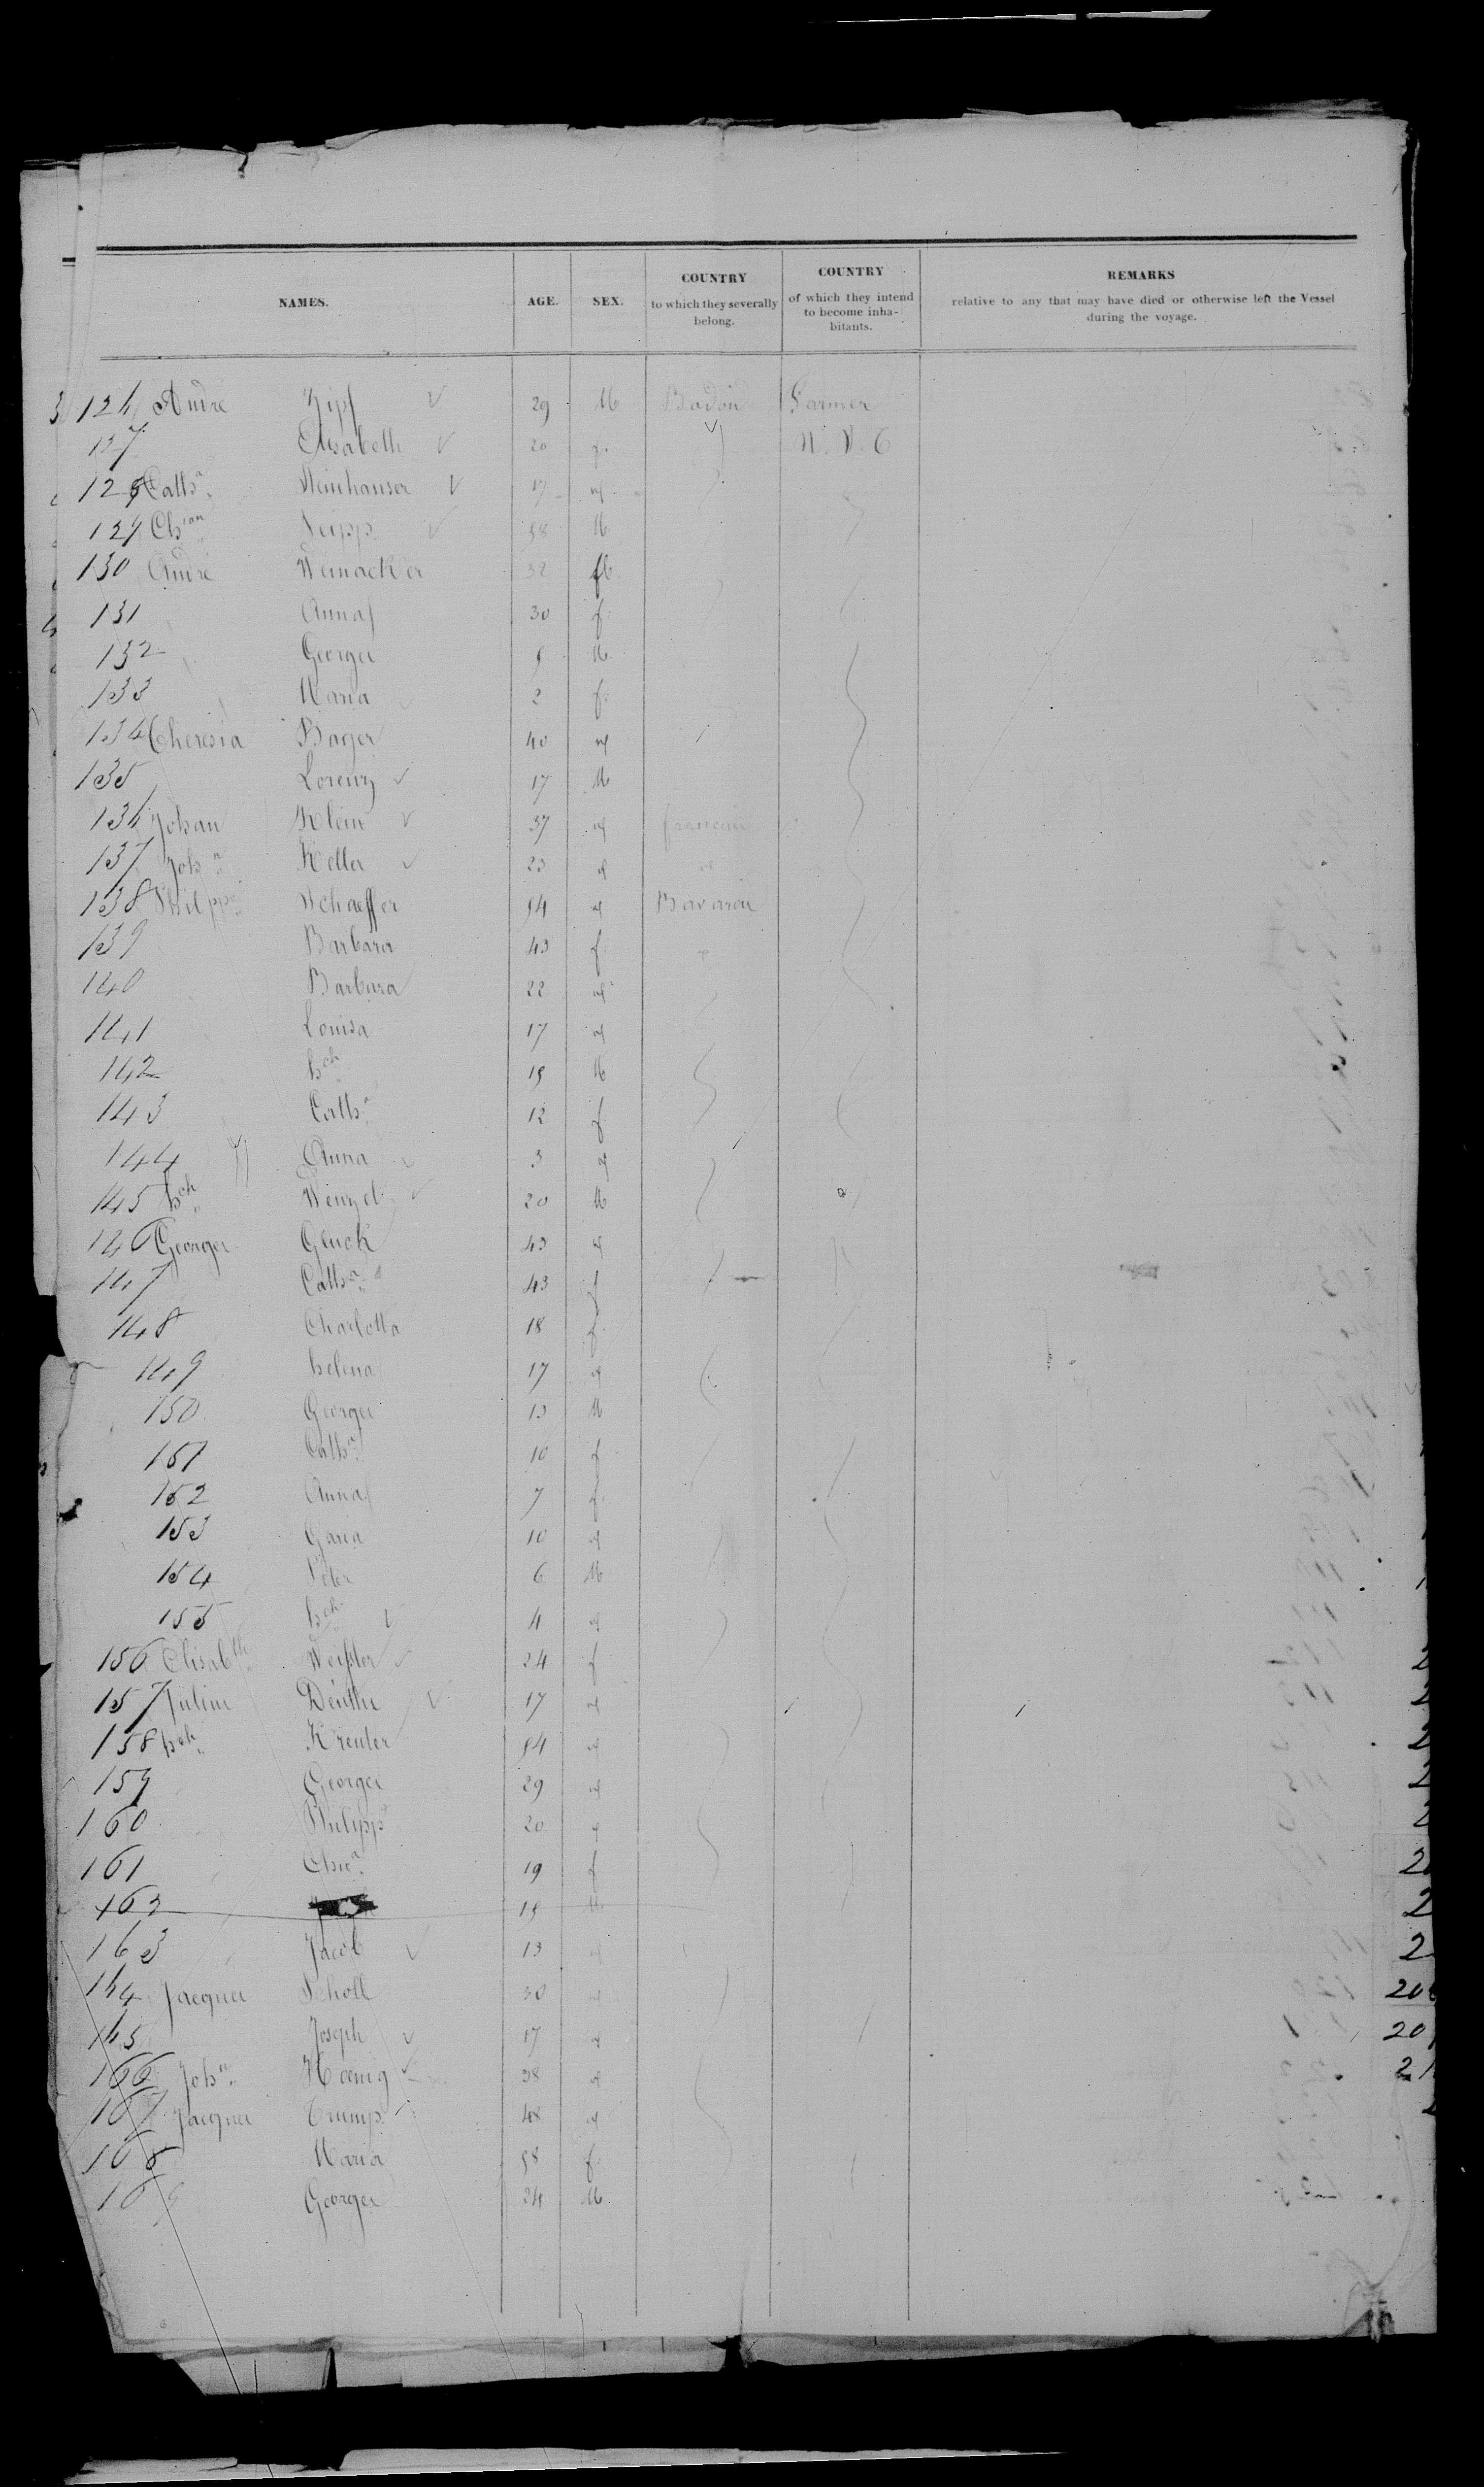 NAMES. AGE. SEX. COUNTRY to which they severally belong. COUNTRY of which they intend to become inha-bitants. REMARKS relative to any that may have died or otherwise left the Vessel during the voyage.
126 André Zipf 29 M Baden Farmer
127 Elisabeth 20 f. N. V. C
128 Cathn Weinhauser 17
129 Chian Seipp 58 M
130 André Weinacker 32 M
131 Anna 30 f.
132 Georges 5 M.
133 Maria 2 f.
134 Theresia Bayer 40
135 Lorenz 17 M
136 Johan Klein 37
137 John Keller 23
138 Philipp Schaeffer 54 Bavaria
139 Barbara 43 f.
140 Barbara 22
141 Louisa 17
142 hch 15 M
143 Cathn 12 f
144 Anna 3
145 hch Wenzel 20 M
146 Georges Gluck 43
147 Cathn 43 f
148 Charlotta 18 f.
149 helena 17
150 Georges 13 M
151 Cathn 10 f
152 Anna 7 f.
153 10
154 Peter 6 M
155 hch 4
156 Elisabth Weissler 24 f
157 Julius 17
158 hch Kreuter 54
159 Georges 29
160 Philipp 20
161 19 f
162 15
163 Jacob 13
164 Jacques Scholl 30
165 Joseph 17
166 John Hoenig 38
167 Jacques Trump 48
168 Maria 58 f.
169 Georges 24 M.